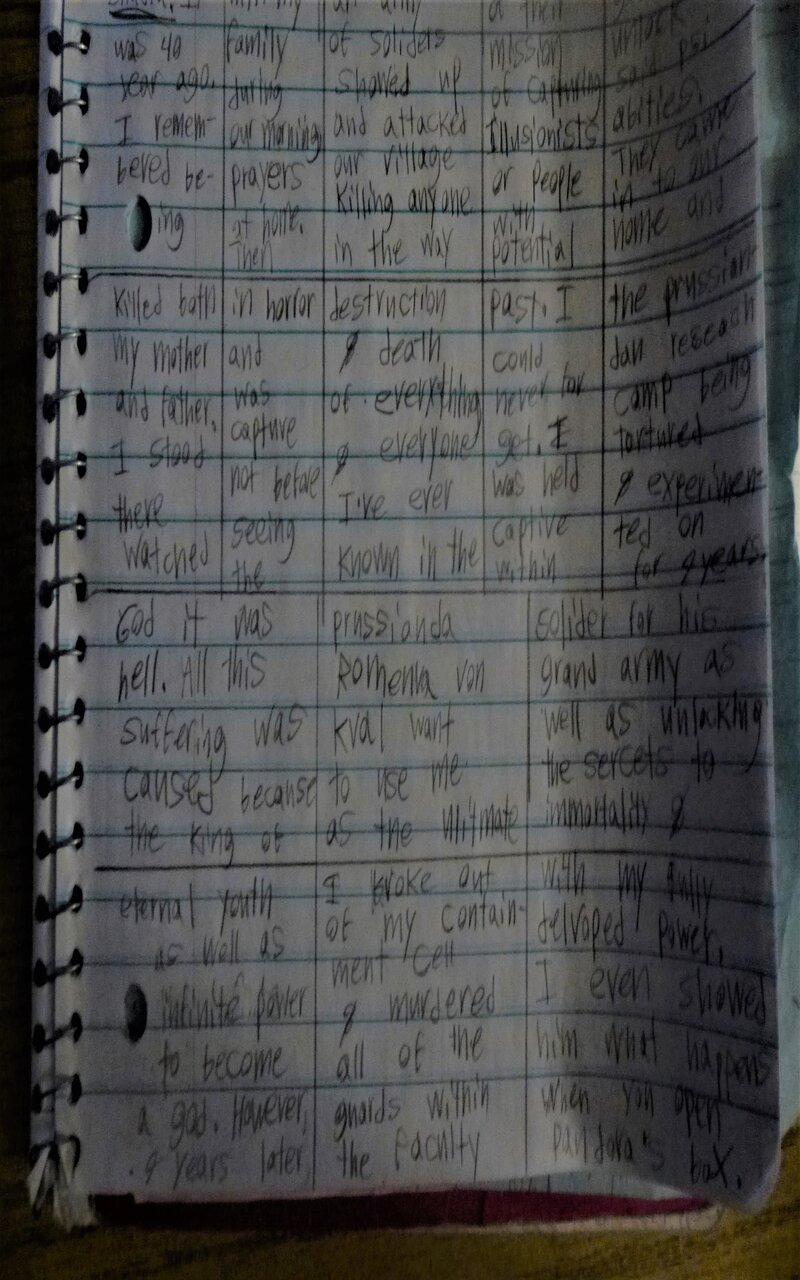 It
was 40
year ago.
I remem-
bered be-
ing
with my
family
during
our morning
prayers
at home.
Then
an army
of soliders
showed up
and attacked
our village
Killing anyone
in the way
their
mission
of capturing
Illusionists
or people
with
potential
unlock
said psi
abities.
They came
in to our
home and
killed both
my mother
and father.
I stood
there
watched
in horror
and
was
capture
not before
seeing
the
destruction
& death
of everything
& everyone
I've ever
known in the
past. I
could
never for
get. I
was held
captive
within
the prussian-
dan reseach
camp being
tortured
& experimen-
ted on
for 9 years.
God it was
hell. All this
suffering was
caused because
the king of
prussianda
Romenva von
kval want
to use me
as the ulitmate
solider for his
grand army as
well as unlocking
the sercets to
immortality &
eternal youth
as well as
infinite power
to become
a god. However,
9 years later,
I broke out
of my contain-
ment cell
& murdered
all of the
guards within
the faculty
with my fully
delvoped power.
I even showed
him what happens
when you open
pandora's box.